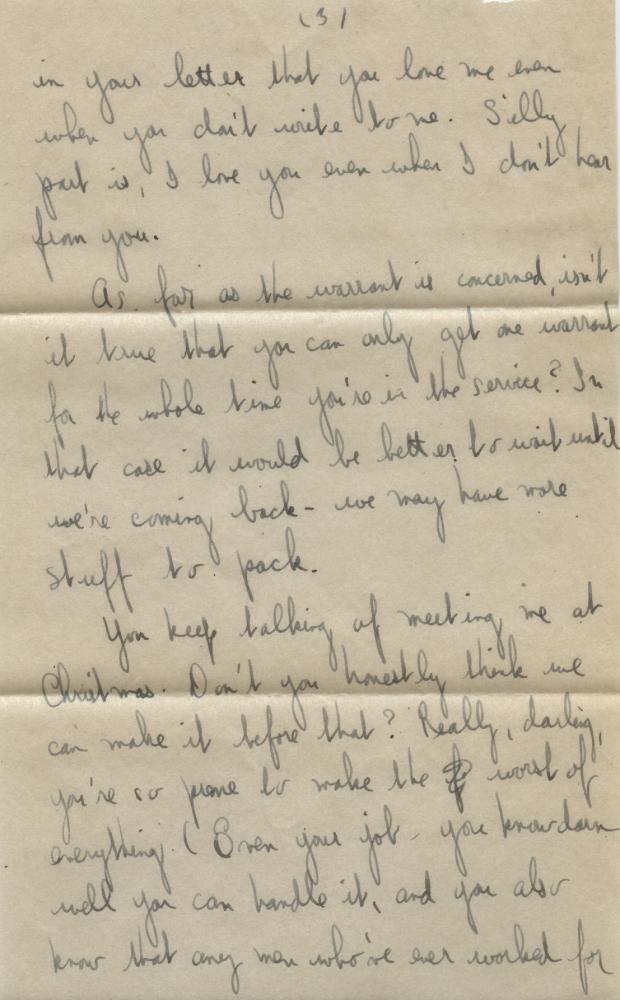 (3)
in your letter that you love me even
when you don't write to me. Silly
part is, I love you even when I don't hear
from you.
As far as the warrant is concerned, isn't
it true that you can only get one warrant
for the whole time you're in the service? In
that case it would be better to wait until
we're coming back - we may have more
stuff to pack.
You keep talking of meeting me at
Christmas. Don't you honestly think we
can make it before that? Really, darling,
you're so prone to make the worst of
everything. (Even your job - you know darn
well you can handle it, and you also
know that any men who've ever worked for